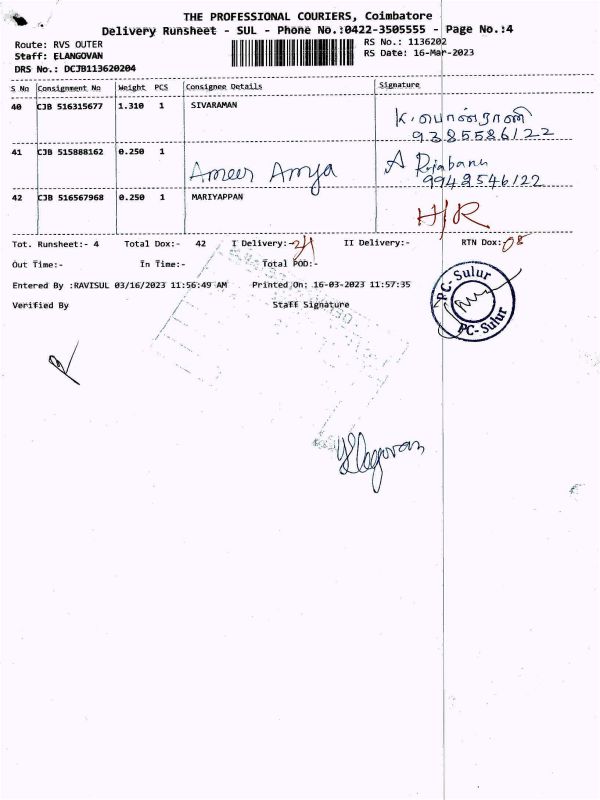 THE PROFESSIONAL COURIERS, Coimbatore
Delivery Runsheet - SUL - Phone No.:0422-3505555 - Page No.:4
Route: RVS OUTER RS No.: 1136202
Staff: ELANGOVAN RS Date: 16-Mar-2023
DRS No.: DCJB113620204
S No Consignment No Weight PCS Consignee Details Signature
40 CJB 516315677 1.310 1 SIVARAMAN
க. பொன்ராணி
9385586122
41 CJB 515888162 0.250 1
Ameer Amja A Rijabanu
9942546122
42 CJB 516567968 0.250 1 MARIYAPPAN
H/R
Tot. Runsheet:- 4 Total Dox:- 42 I Delivery:- II Delivery:- RTN Dox:- 08
Out Time:- In Time:- Total POD:-
Entered By :RAVISUL 03/16/2023 11:56:49 AM Printed On: 16-03-2023 11:57:35
Verified By Staff Signature
PC-Sulur
PC-Sulur
Elagovan